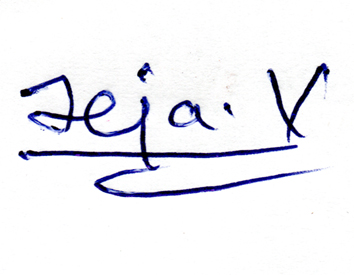 Teja. V